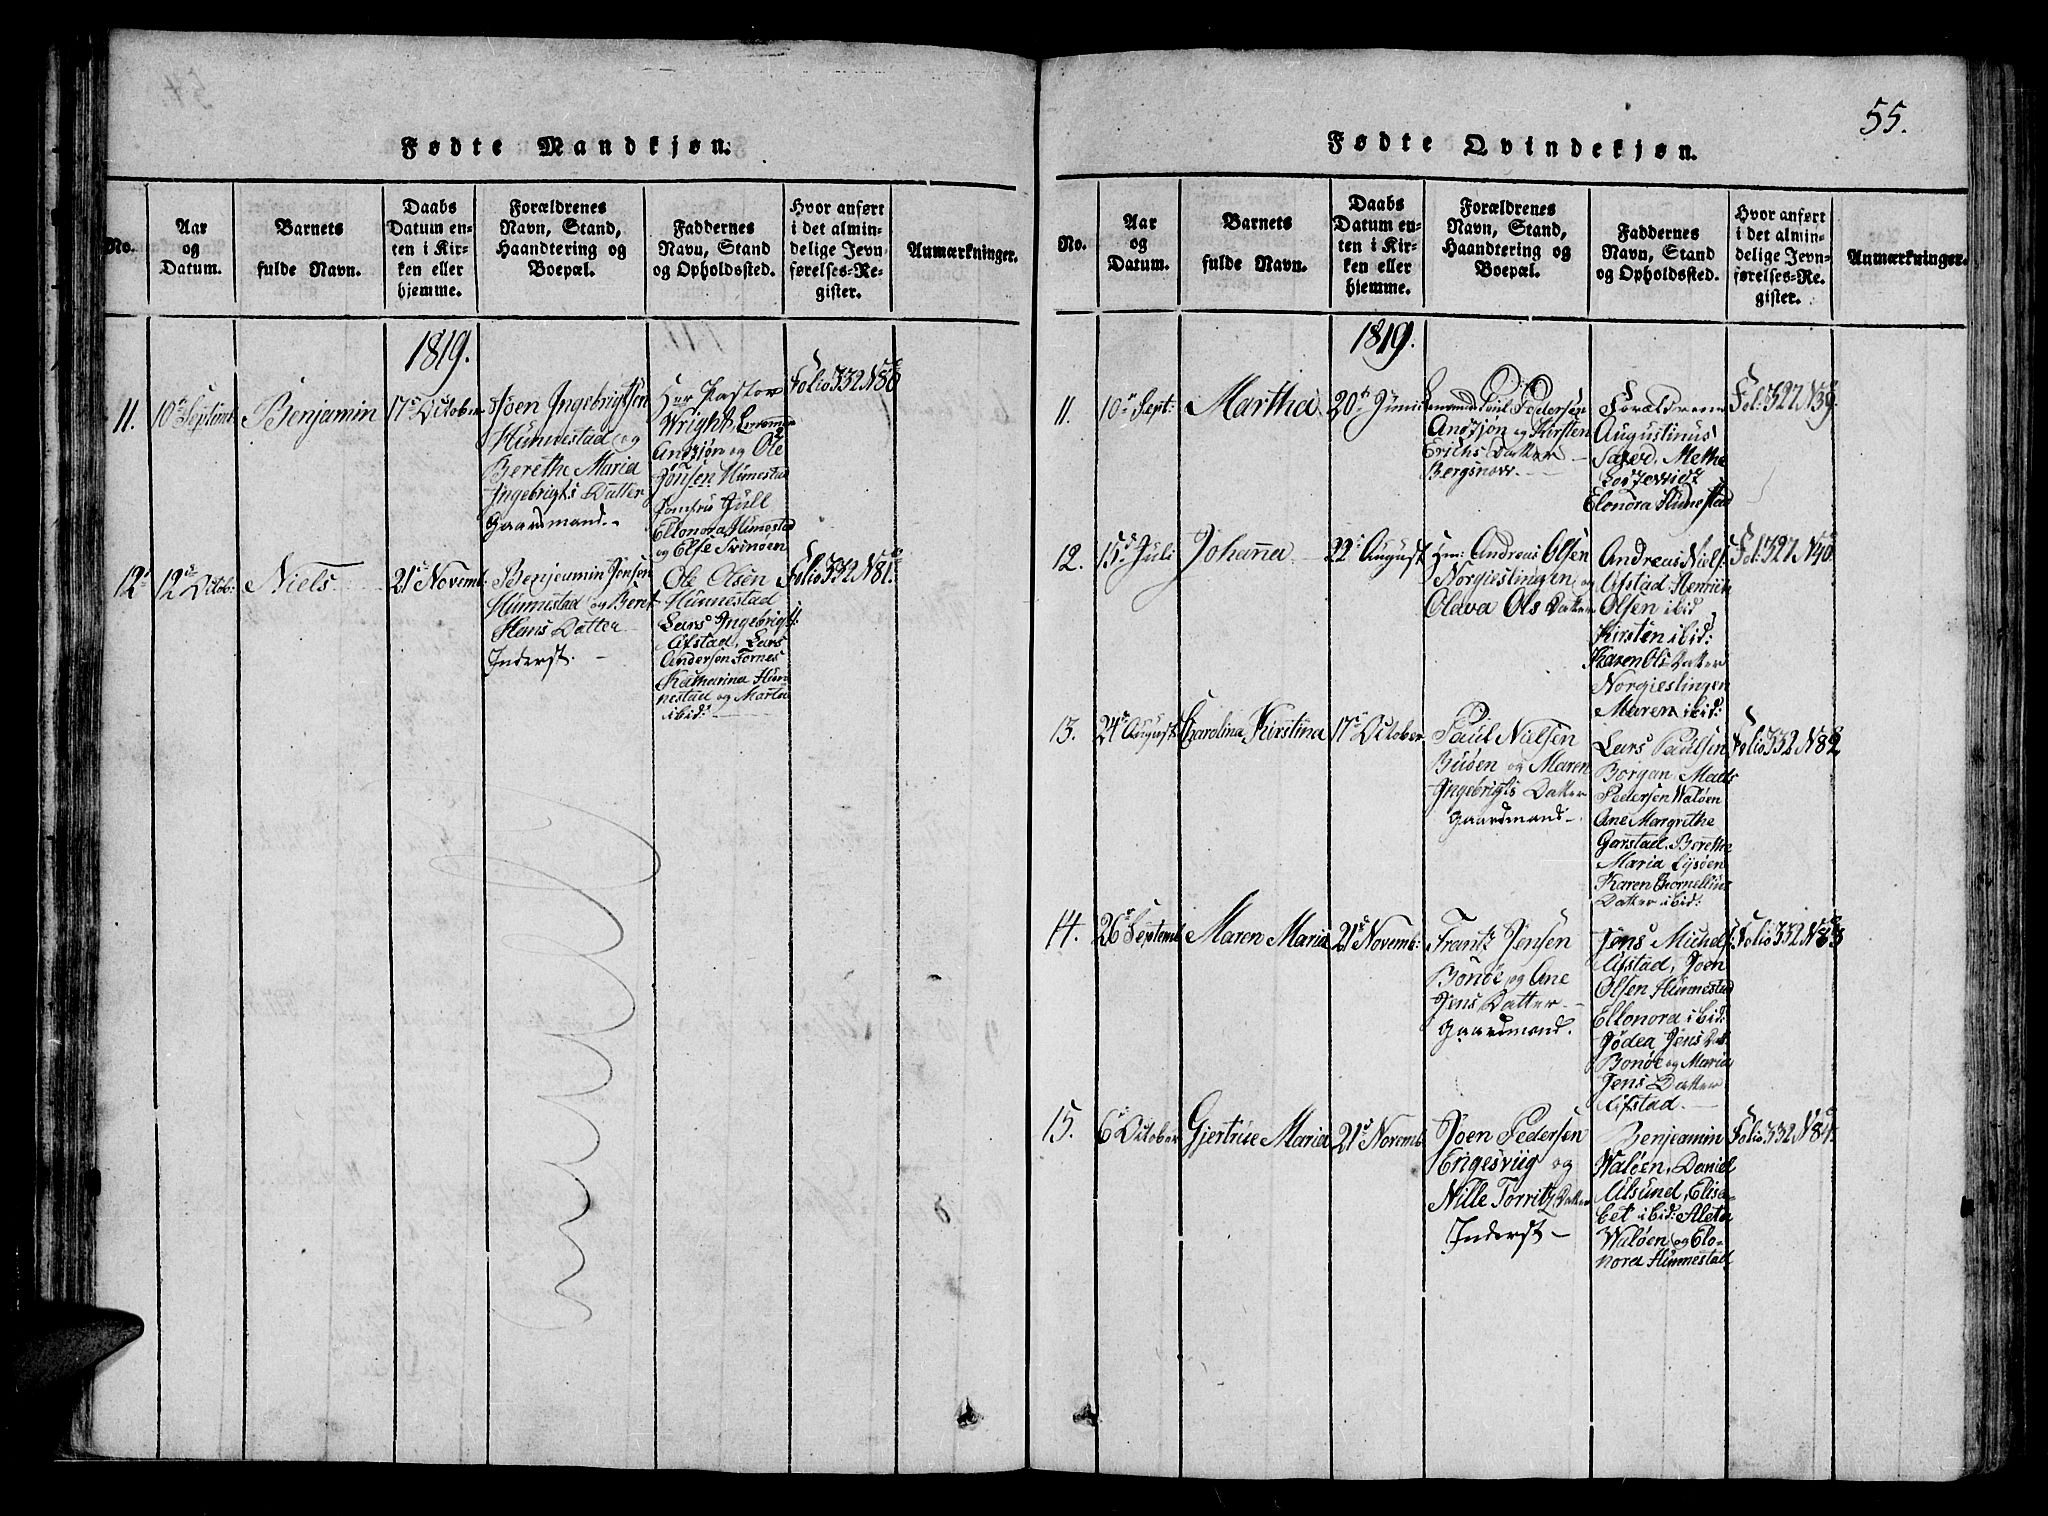 Fødte Mandkjøn.
No.
Aar
og
Datum.
Barnets
fulde Navn.
Daabs
Datum en-
ten i Kir-
ken eller
hjemme.
Forældrenes
Navn, Stand,
Haandtering og
Boepæl.
Faddernes
Navn, Stand
og Opholdssted.
Hvor anført
i det almin-
delige Jevn-
førelses-Re-
gister.
Anmærkninger.
1819.
11.
10de Septemb:
Benjamin
17de October
Joen Ingebrigtsen
Hunnestad og
Berethe Maria
Ingebrigts Datter
Gaardmand.
Her Pastor
Wright,
og Ole
Jonsen Hunestad
Jomfru Jull
Ellonora Hunestad
og Else Svinøen
Folio 332 No 80
12te
12te Octob:
Niels
21de Novemb:
Benjeamin Jensen
Hunnestad og Beret
Hans Datter
Inderst.
Ole Olsen
Hunnestad
Lars Ingebrigts:
Afstad, Lars
Andersen Fornes
Katharina Hun-
nestad og Marta
ibid:
Folio 332 No 81.
55.
Fødte Qvindekjøn.
No.
Aar
og
Datum.
Barnets
fulde Navn.
Daabs
Datum en-
ten i Kir-
ken eller
hjemme.
Forældrenes
Navn, Stand,
Haandtering og
Boepæl.
Faddernes
Navn, Stand
og Opholdssted.
Hvor anført
i det almin-
delige Jevn-
førelses-Re-
gister.
Anmærkninger.
1819.
11.
10de Sept:
Martha
20de Juni
Poul Pedersen
og Kirsten
Erichs Datter
Forældrene
Augustinus
Methe
Elonora Hunestad
Fol: 327 No 39.
12.
15de Juli
Johanna
22de August
Hm: Andreas Olsen
Norgieslingen og
Olava Ols Datter
Andreas Niels:
Afstad, Henrich
Olsen ibid
Kirsten ibid:
Karen Ols Datter
Norgieslingen
Maren ibid:
Fol: 327 No 40
13.
24de August
Carolina Kirstina
17de October
Paul Nielsen
Buøen og Maren
Ingebrigts Datter
Gaardmand
Lars Paulsen
Borgan Mads
Pedersen Waløen
Ane Margrethe
Garstad, Berethe
Maria Lysøen
Karen Cornelius
Datter ibid:
Folio 332 No 82
14.
26de Septemb
Maren Maria
21de Novemb:
Frantz Jensen
Bonøe og Ane
Jens Datter
Gaardmand.
Jens Michels:
Afstad, Joen
Olsen Hunnestad
Ellonora ibid:
Jødea Jens Dat:
Bonøe og Maria
Jens Datter
Afstad.
Folio 332 No 83
15.
6te October
Gjertrue Maria
21de Novemb
Joen Pedersen
Engesvug og
Nille Torritz Datter
Inderst
Benjeamin
Waløen, Daniel
Alsund, Elisa-
bet ibid: Aleta
Waløen og Elo-
nora Hunnestad
Folio 332 No 84.